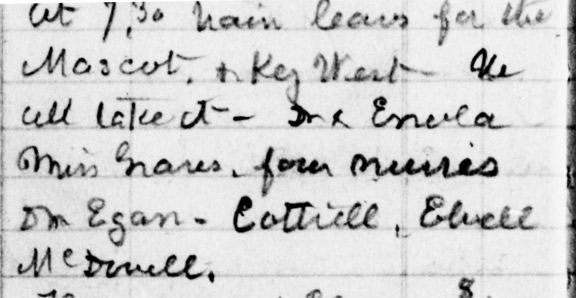 at 7,30 train leaves for the
Mascot, & Key West – We
all take it – Dr &
Miss Graves, four nurses
Dr Egan – Cottrell, Elwell
McDowell.